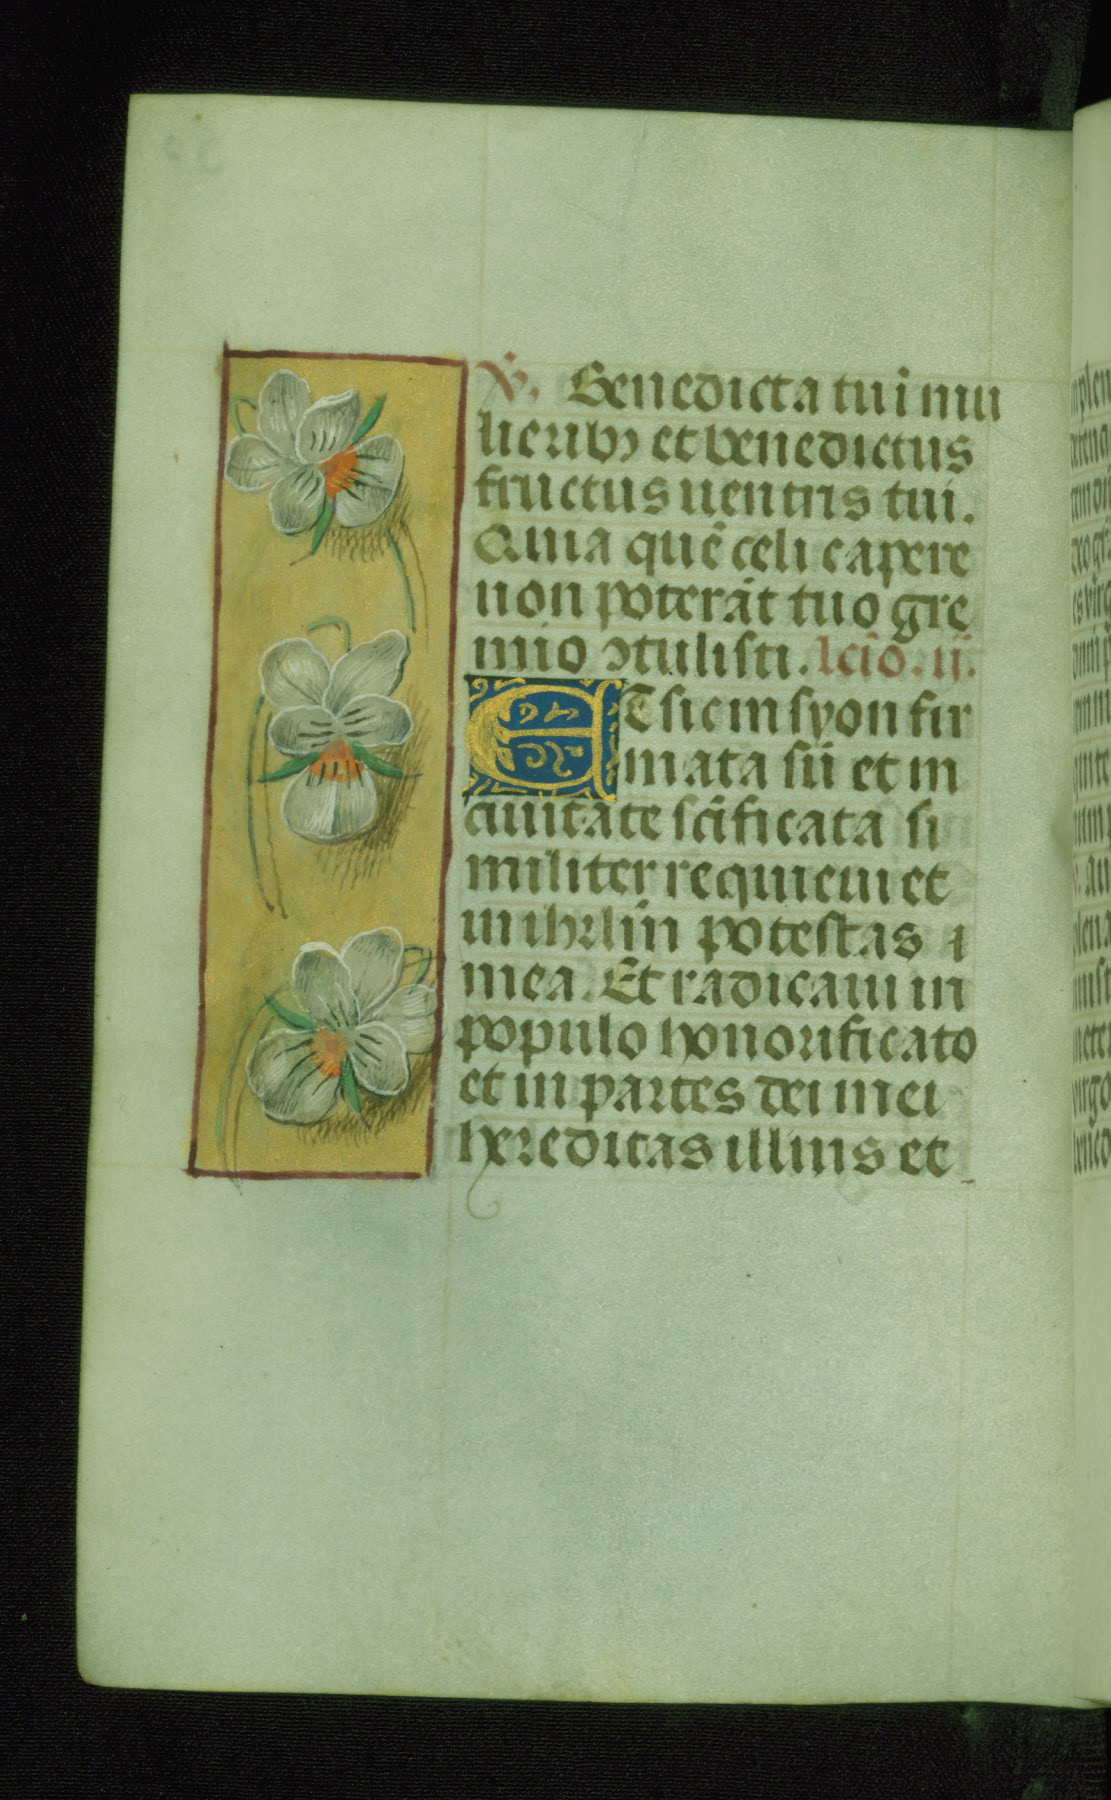 V. Benedicta tu ī mu
lieribꝫ et benedictus
fructus uentris tui.
Quia quē celi capere
non poterāt tuo gre
mio ↄtulisti. lcīo. ij.
ET sic in syon fir
mata sū et in
ciuitate scīficata si
militer requieui et
in ihrlm̄ potestas
mea. Et radicaui in
populo honorificato
et in partes dei mei
hereditas illius et